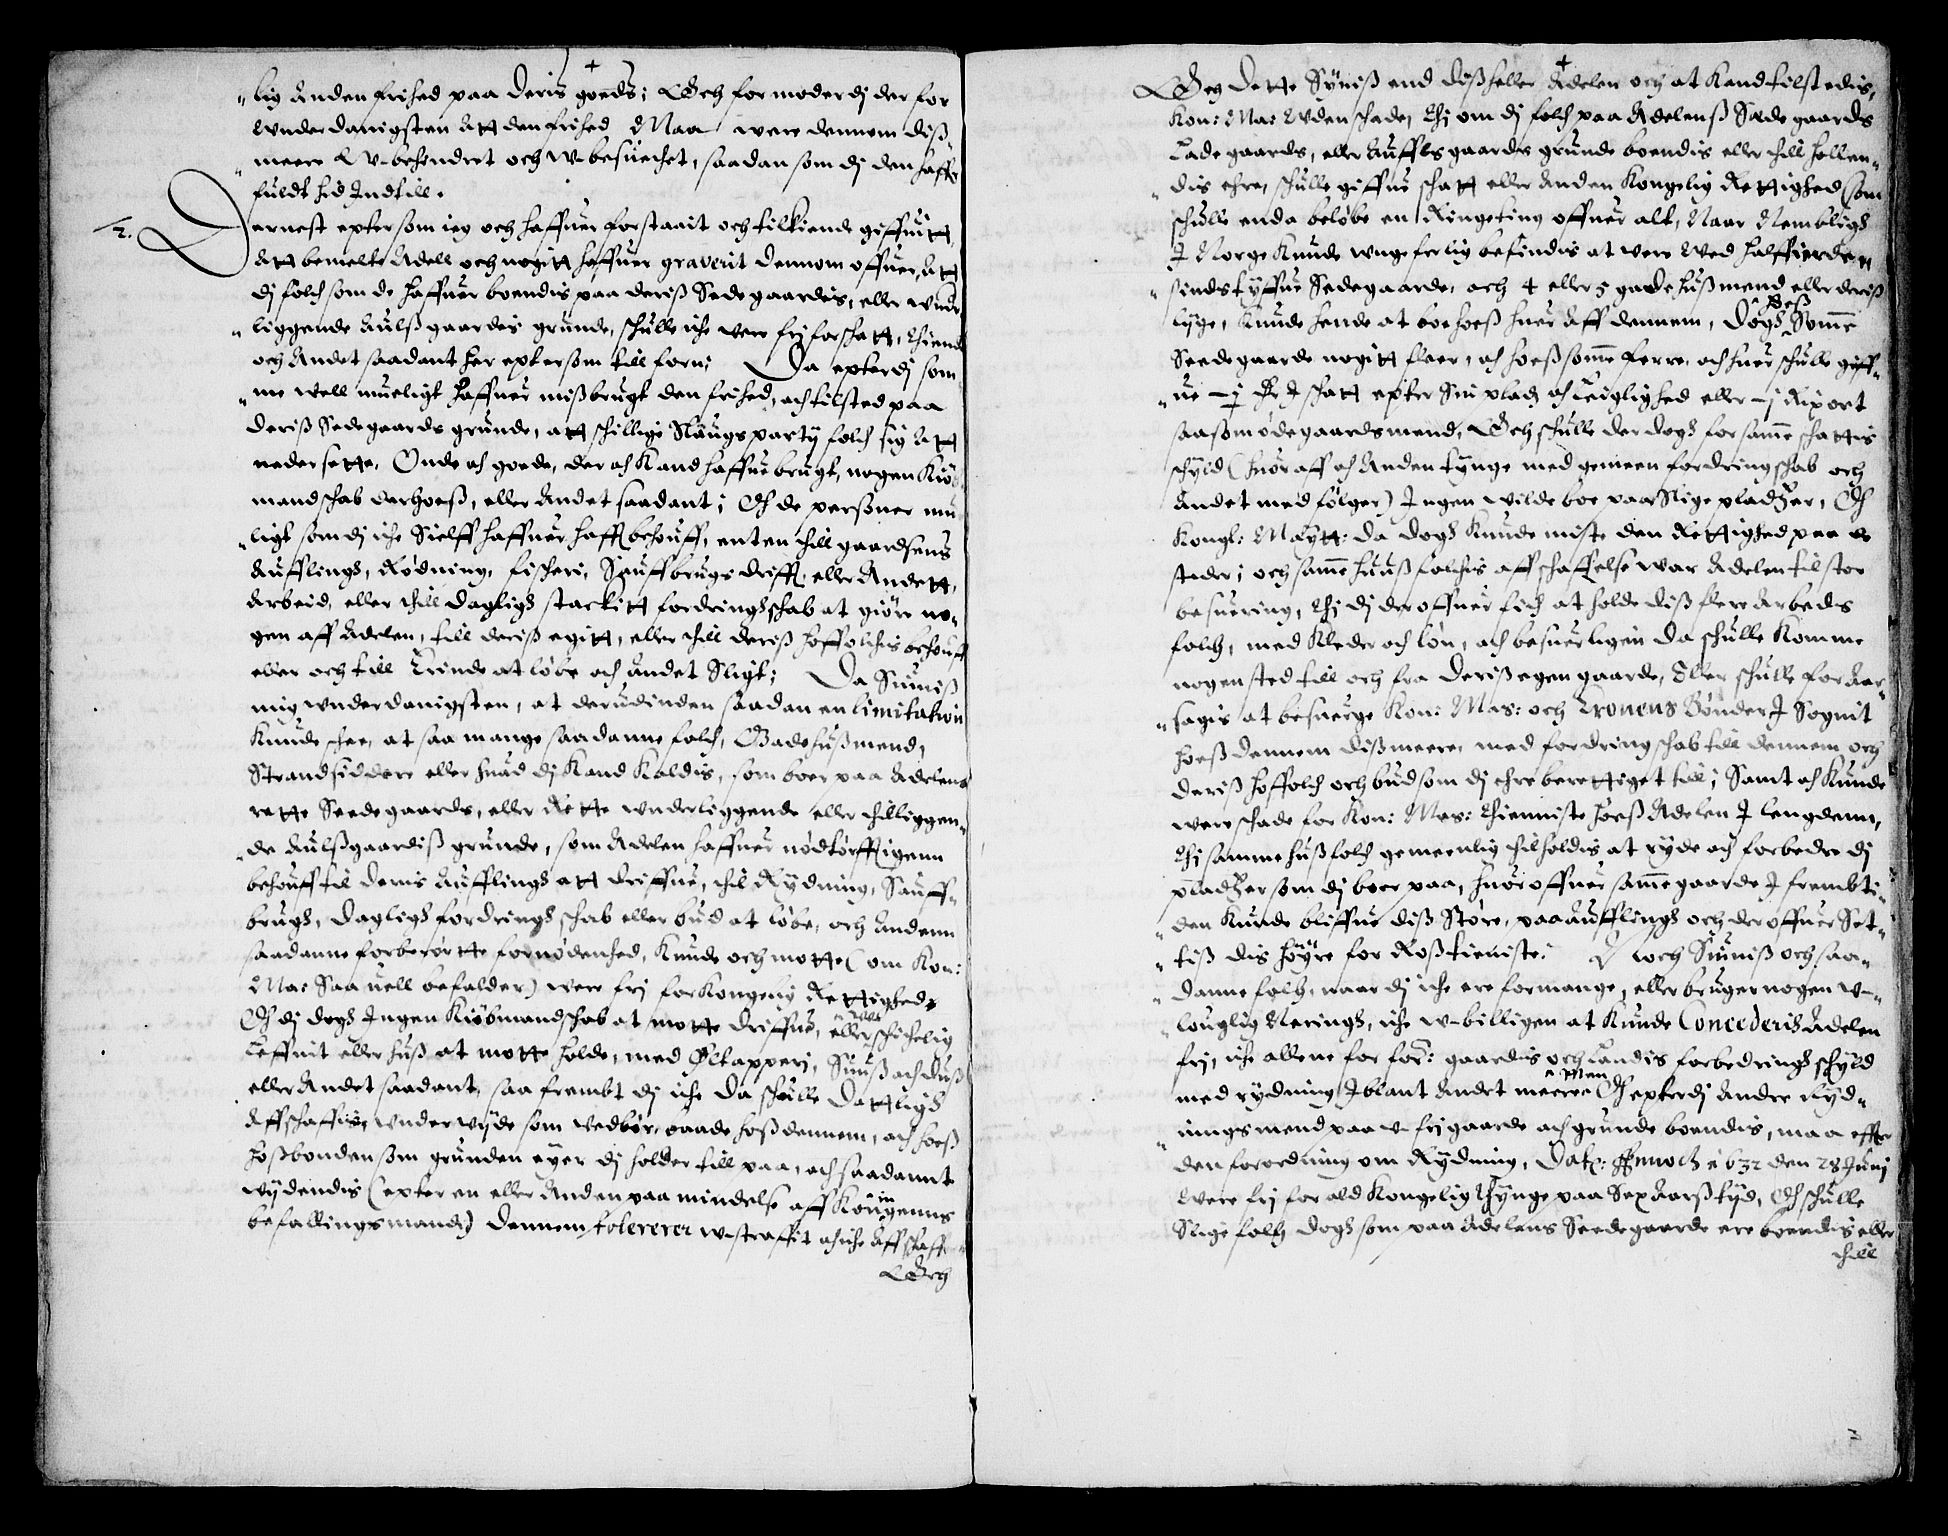 lig Anden frihed paa deris goeds; Och formoder dj der for
wnderdanigsten Att den frihed Maa were dennem diß
meere W-behendret och W-besuechet, saadan som dj den haffr
fuldt hid Indtill.
2. Dernest epter som ieg och haffuer forstaait och tilkiende giffuitt,
Att bemelte Adell och nogitt haffuer graverit dennom offuer, Att
dj folch som de haffuer boendis paa deriß Sedegaardis, eller wnder
liggende Aulßgaardis grunde, schulle iche were frj for schatt, thiende
och Andet saadant her epter som till forn; Da epterdj som
me well mueligt haffuer mißbrugt den frihed, och tilsted paa
deriß Sedegaards grunde, att schillige Slaugs party folch sig Att
neder sette, Onde och goede, der och Kand haffue brugt, nogen Kiøb
mandschab derhoeß, eller Andet saadant; Och de perßoner mu
ligt som dj iche Sielff haffuer hafft behouff, enten thill gaardsens
Aufflings, Rødning, fischeri, Sauffbrugs drifft, eller Andett,
Arbeid, eller thill dagligs starkitt fordringschab at giøre no-
gen aff Adelen, till deriß egitt, eller thill deriß hoffolchis behouff
eller och till Erinde at løbe och Andet Sligt; Da Siuniß
mig wnderdanigsten, at derudinden saadan en limitation
Kunde schee, at saa mange saadanne folch, Gadehußmend,
Strandsiddere eller huad dj Kand Kaldis, som boer paa Adelens
rette Seedegaards, eller Rette wnderliggende eller thilliggen-
de Aulßgaardiß grunde, som Adelen haffuer nødtørfftigenn
behouff til denis Aufflings att driffue, thil Rydning, Sauff-
brugs, dagligs fordringschab eller bud at løbe, och Andenn
saadanne forberørtte fornødenhed, Kunde och motte (om Kon:
Ma: Saa uell befalder) were frj for Kongelig Rettighed,
Och dj dogs Ingen Kiøbmandschab at motte driffue, eller schichelig
Leffnit eller huß at motte holde, med Øltapperj, Suuß och duß
eller Andet saadant, saa frembt dj iche da schulle dattligs
Affschaffis, wnder wijde som wedbør, baade hoß dennem, och hoeß
hoßbonden som grunden eyer dj holder till paa, och saadannt
wijdendis (epter en eller Anden paamindelse aff Kongenns
befallingsmand) dennem tolererer wstraffit och iche Affschaffer
Och
Och dette Syniß end dißheller Adelen och at Kand tilstedis,
Kon: Ma: Uden schade, thj om dj folch paa Adelenß Sædegaards
Ladegaards, eller Aufflsgaards grunde boendis eller thill hollen-
dis ehre, schulle giffue schatt eller Anden Kongelig Rettighed (som
schulle enda beløbe en Ringeting offuer alt, Naar Nembligs
I Norge Kunde wngeferlig befindis at were wed halffierde
sindstyffue Sedegaarde, och 4 eller 5 gadehußmend eller deriß
lyge, Kunde hende at boe hoeß huer Aff dennem, Dogs hoeß Somme
Seedegaarde nogitt fleer, och hoeß somme ferre, och huer schulle giff-
ue - j dlr I schatt epter Sin plads och leiglighed eller - j Rixort
saasom ødegaardsmend, Och schulle der dogs for samme schattis
schyld (huor aff och Anden tynge med gemeen fordringschab och
Andet med følger) Ingen wilde boe paa Slige pladtzer, Och
Kongl: Maytt: da dogs Kunde miste den Rettighed paa de
steder; och samme huußfolchis affschaffelse war Adelen til stor
besuering, thj dj der offuer fich at holde diß flere Arbeds
folch, med Kleder och løn, och besuerligen da schulle Komme
nogensted till och fra deriß egen gaarde, Eller schulle foraar-
sagis at besuerge Kon: Mas: och Cronens Bønder I Sognit
hoeß dennem dißmeere, med fordringschab till dennem och
deriß hoffolch och bud som dj ehre berettiget till; Samt och Kunde
were schade for Kon: Mas: thienniste hoeß Adelen I lengdenn,
thj samme hußfolch gemeenlig thilholdis at ryde och forbedre dj
pladtzer som dj boer paa, huor offuer samme gaarde I frembti-
den Kunde bliffue diß Støre, paa Aufflings och der offuer Set-
tiß dis høyre for Roßtieniste. Och Siuniß och saa-
danne folch, naar dj iche ere formange, eller bruger nogen w-
louglig Nerings, iche w-billigen at Kunde Concederis Adelen
frj, iche allene for forn: gaardis och Landis forbedrings schyld
med rydning Iblant Andet meere men Och epterdj Andre Ryd-
ningsmend paa w-frj gaarde och grunde boendis, maa effter
den forordning om Rydning, Dat: Anno 1632 den 28 Junj
were frj for ald Kongelig thynge paa Sex Aarß tyd, Och schulle
Slige folch dogs som paa Adelens Seedegaarde ere boendis eller
thill